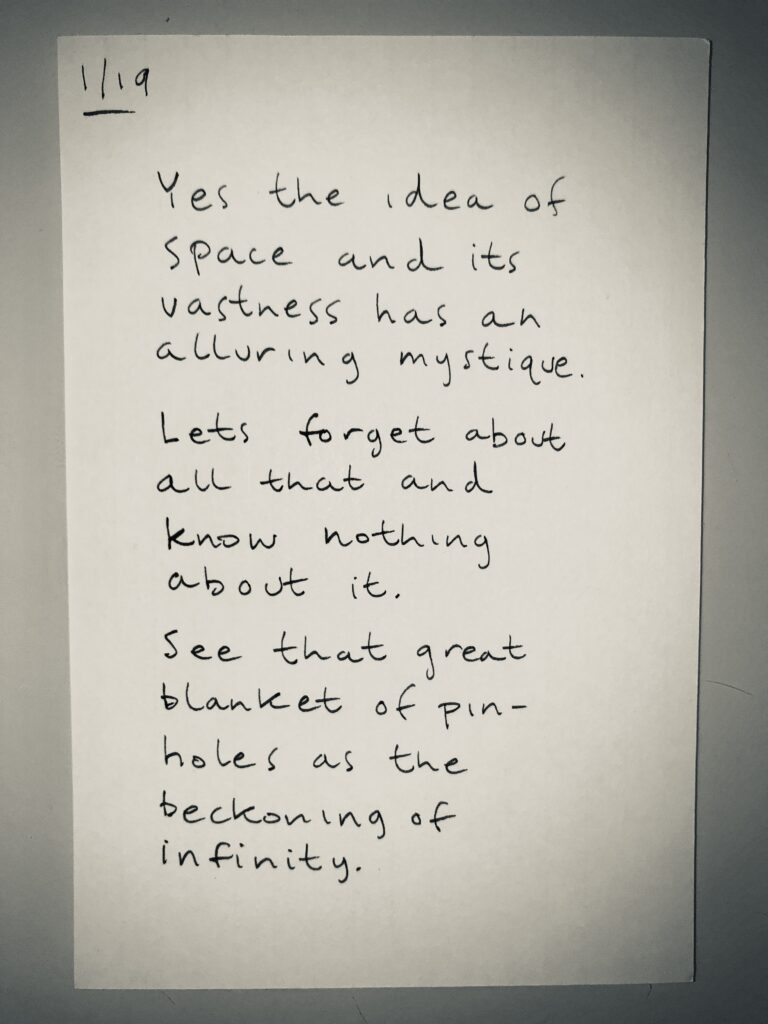 1/19
Yes the idea of
space and its
vastness has an
alluring mystique.
Lets forget about
all that and
know nothing
about it.
See that great
blanket of pin-
holes as the
beckoning of
infinity.